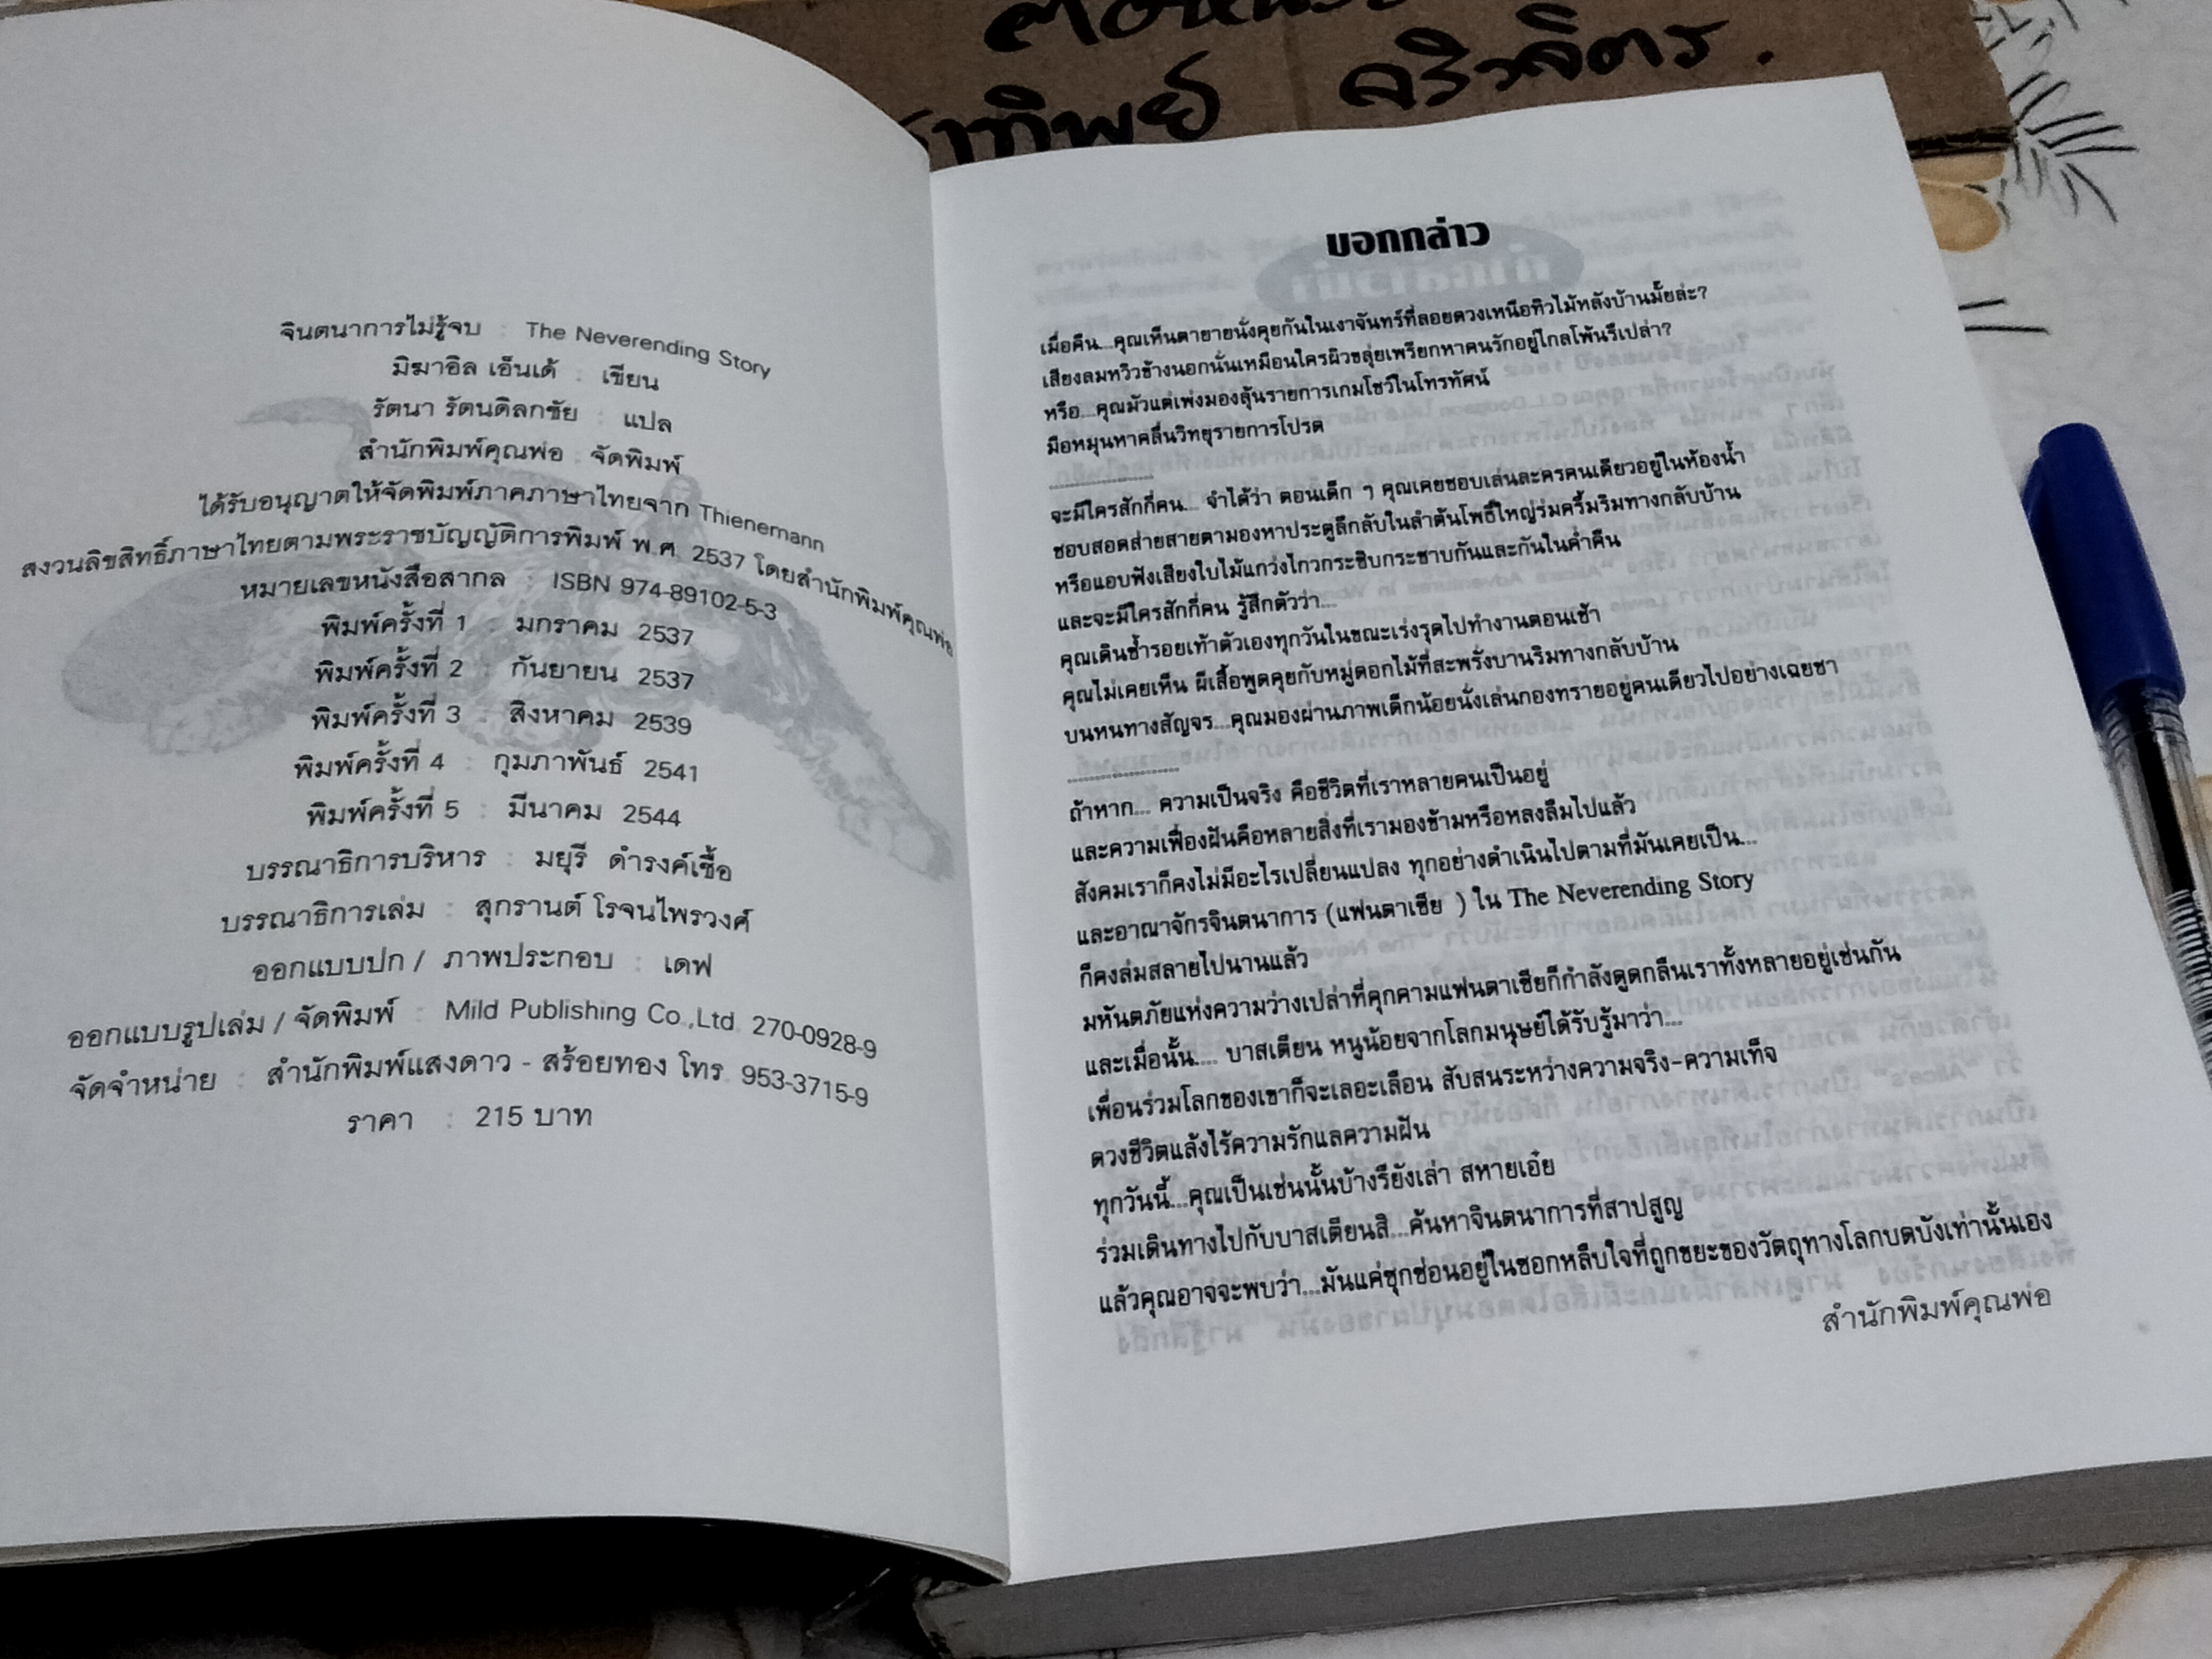 ทิพย์ ศรีวิจิตร.
จินตนาการไม่รู้จบ : The Neverending Story
มิฆาอิล เอ็นเด้ : เขียน
รัตนา รัตนดิลกชัย : แปล
สำนักพิมพ์คุณพ่อ : จัดพิมพ์
ได้รับอนุญาตให้จัดพิมพ์ภาคภาษาไทยจาก Thienemann
สงวนลิขสิทธิ์ภาษาไทยตามพระราชบัญญัติการพิมพ์ พ.ศ. 2537 โดยสำนักพิมพ์คุณพ่อ
หมายเลขหนังสือสากล : ISBN 974-89102-5-3
พิมพ์ครั้งที่ 1 : มกราคม 2537
พิมพ์ครั้งที่ 2 : กันยายน 2537
พิมพ์ครั้งที่ 3 : สิงหาคม 2539
พิมพ์ครั้งที่ 4 : กุมภาพันธ์ 2541
พิมพ์ครั้งที่ 5 : มีนาคม 2544
บรรณาธิการบริหาร : มยุรี ดำรงค์เชื้อ
บรรณาธิการเล่ม : สุกรานต์ โรจนไพรวงศ์
ออกแบบปก / ภาพประกอบ : เดฟ
ออกแบบรูปเล่ม / จัดพิมพ์ : Mild Publishing Co.,Ltd. 270-0928-9
จัดจำหน่าย : สำนักพิมพ์แสงดาว - สร้อยทอง โทร. 953-3715-9
ราคา : 215 บาท
บอกกล่าว
เมื่อคืน...คุณเห็นตายายนั่งคุยกันในเงาจันทร์ที่ลอยดวงเหนือทิวไม้หลังบ้านมั้ยล่ะ?
เสียงลมหวิวข้างนอกนั่นเหมือนใครผิวขลุ่ยเพรียกหาคนรักอยู่ไกลโพ้นรึเปล่า?
หรือ...คุณมัวแต่เพ่งมองลุ้นรายการเกมโชว์ในโทรทัศน์
มือหมุนหาคลื่นวิทยุรายการโปรด
....................
จะมีใครสักกี่คน... จำได้ว่า ตอนเด็ก ๆ คุณเคยชอบเล่นละครคนเดียวอยู่ในห้องน้ำ
ชอบสอดส่ายสายตามองหาประตูลึกลับในลำต้นโพธิ์ใหญ่ร่มครึ้มริมทางกลับบ้าน
หรือแอบฟังเสียงใบไม้แกว่งไกวกระซิบกระซาบกันและกันในค่ำคืน
และจะมีใครสักกี่คน รู้สึกตัวว่า...
คุณเดินซ้ำรอยเท้าตัวเองทุกวันในขณะเร่งรุดไปทำงานตอนเช้า
คุณไม่เคยเห็น ผีเสื้อพูดคุยกับหมู่ดอกไม้ที่สะพรั่งบานริมทางกลับบ้าน
บนหนทางสัญจร...คุณมองผ่านภาพเด็กน้อยนั่งเล่นกองทรายอยู่คนเดียวไปอย่างเฉยชา
....................
ถ้าหาก... ความเป็นจริง คือชีวิตที่เราหลายคนเป็นอยู่
และความเฟื่องฝันคือหลายสิ่งที่เรามองข้ามหรือหลงลืมไปแล้ว
สังคมเราก็คงไม่มีอะไรเปลี่ยนแปลง ทุกอย่างดำเนินไปตามที่มันเคยเป็น...
และอาณาจักรจินตนาการ (แฟนตาเซีย ) ใน The Neverending Story
ก็คงล่มสลายไปนานแล้ว
มหันตภัยแห่งความว่างเปล่าที่คุกคามแฟนตาเซียก็กำลังดูดกลืนเราทั้งหลายอยู่เช่นกัน
และเมื่อนั้น.... บาสเตียน หนูน้อยจากโลกมนุษย์ได้รับรู้มาว่า...
เพื่อนร่วมโลกของเขาก็จะเลอะเลือน สับสนระหว่างความจริง-ความเท็จ
ดวงชีวิตแล้งไร้ความรักแลความฝัน
ทุกวันนี้...คุณเป็นเช่นนั้นบ้างรึยังเล่า สหายเอ๋ย
ร่วมเดินทางไปกับบาสเตียนสิ...ค้นหาจินตนาการที่สาปสูญ
แล้วคุณอาจจะพบว่า...มันแค่ซุกซ่อนอยู่ในซอกหลืบใจที่ถูกขยะของวัตถุทางโลกบดบังเท่านั้นเอง
สำนักพิมพ์คุณพ่อ